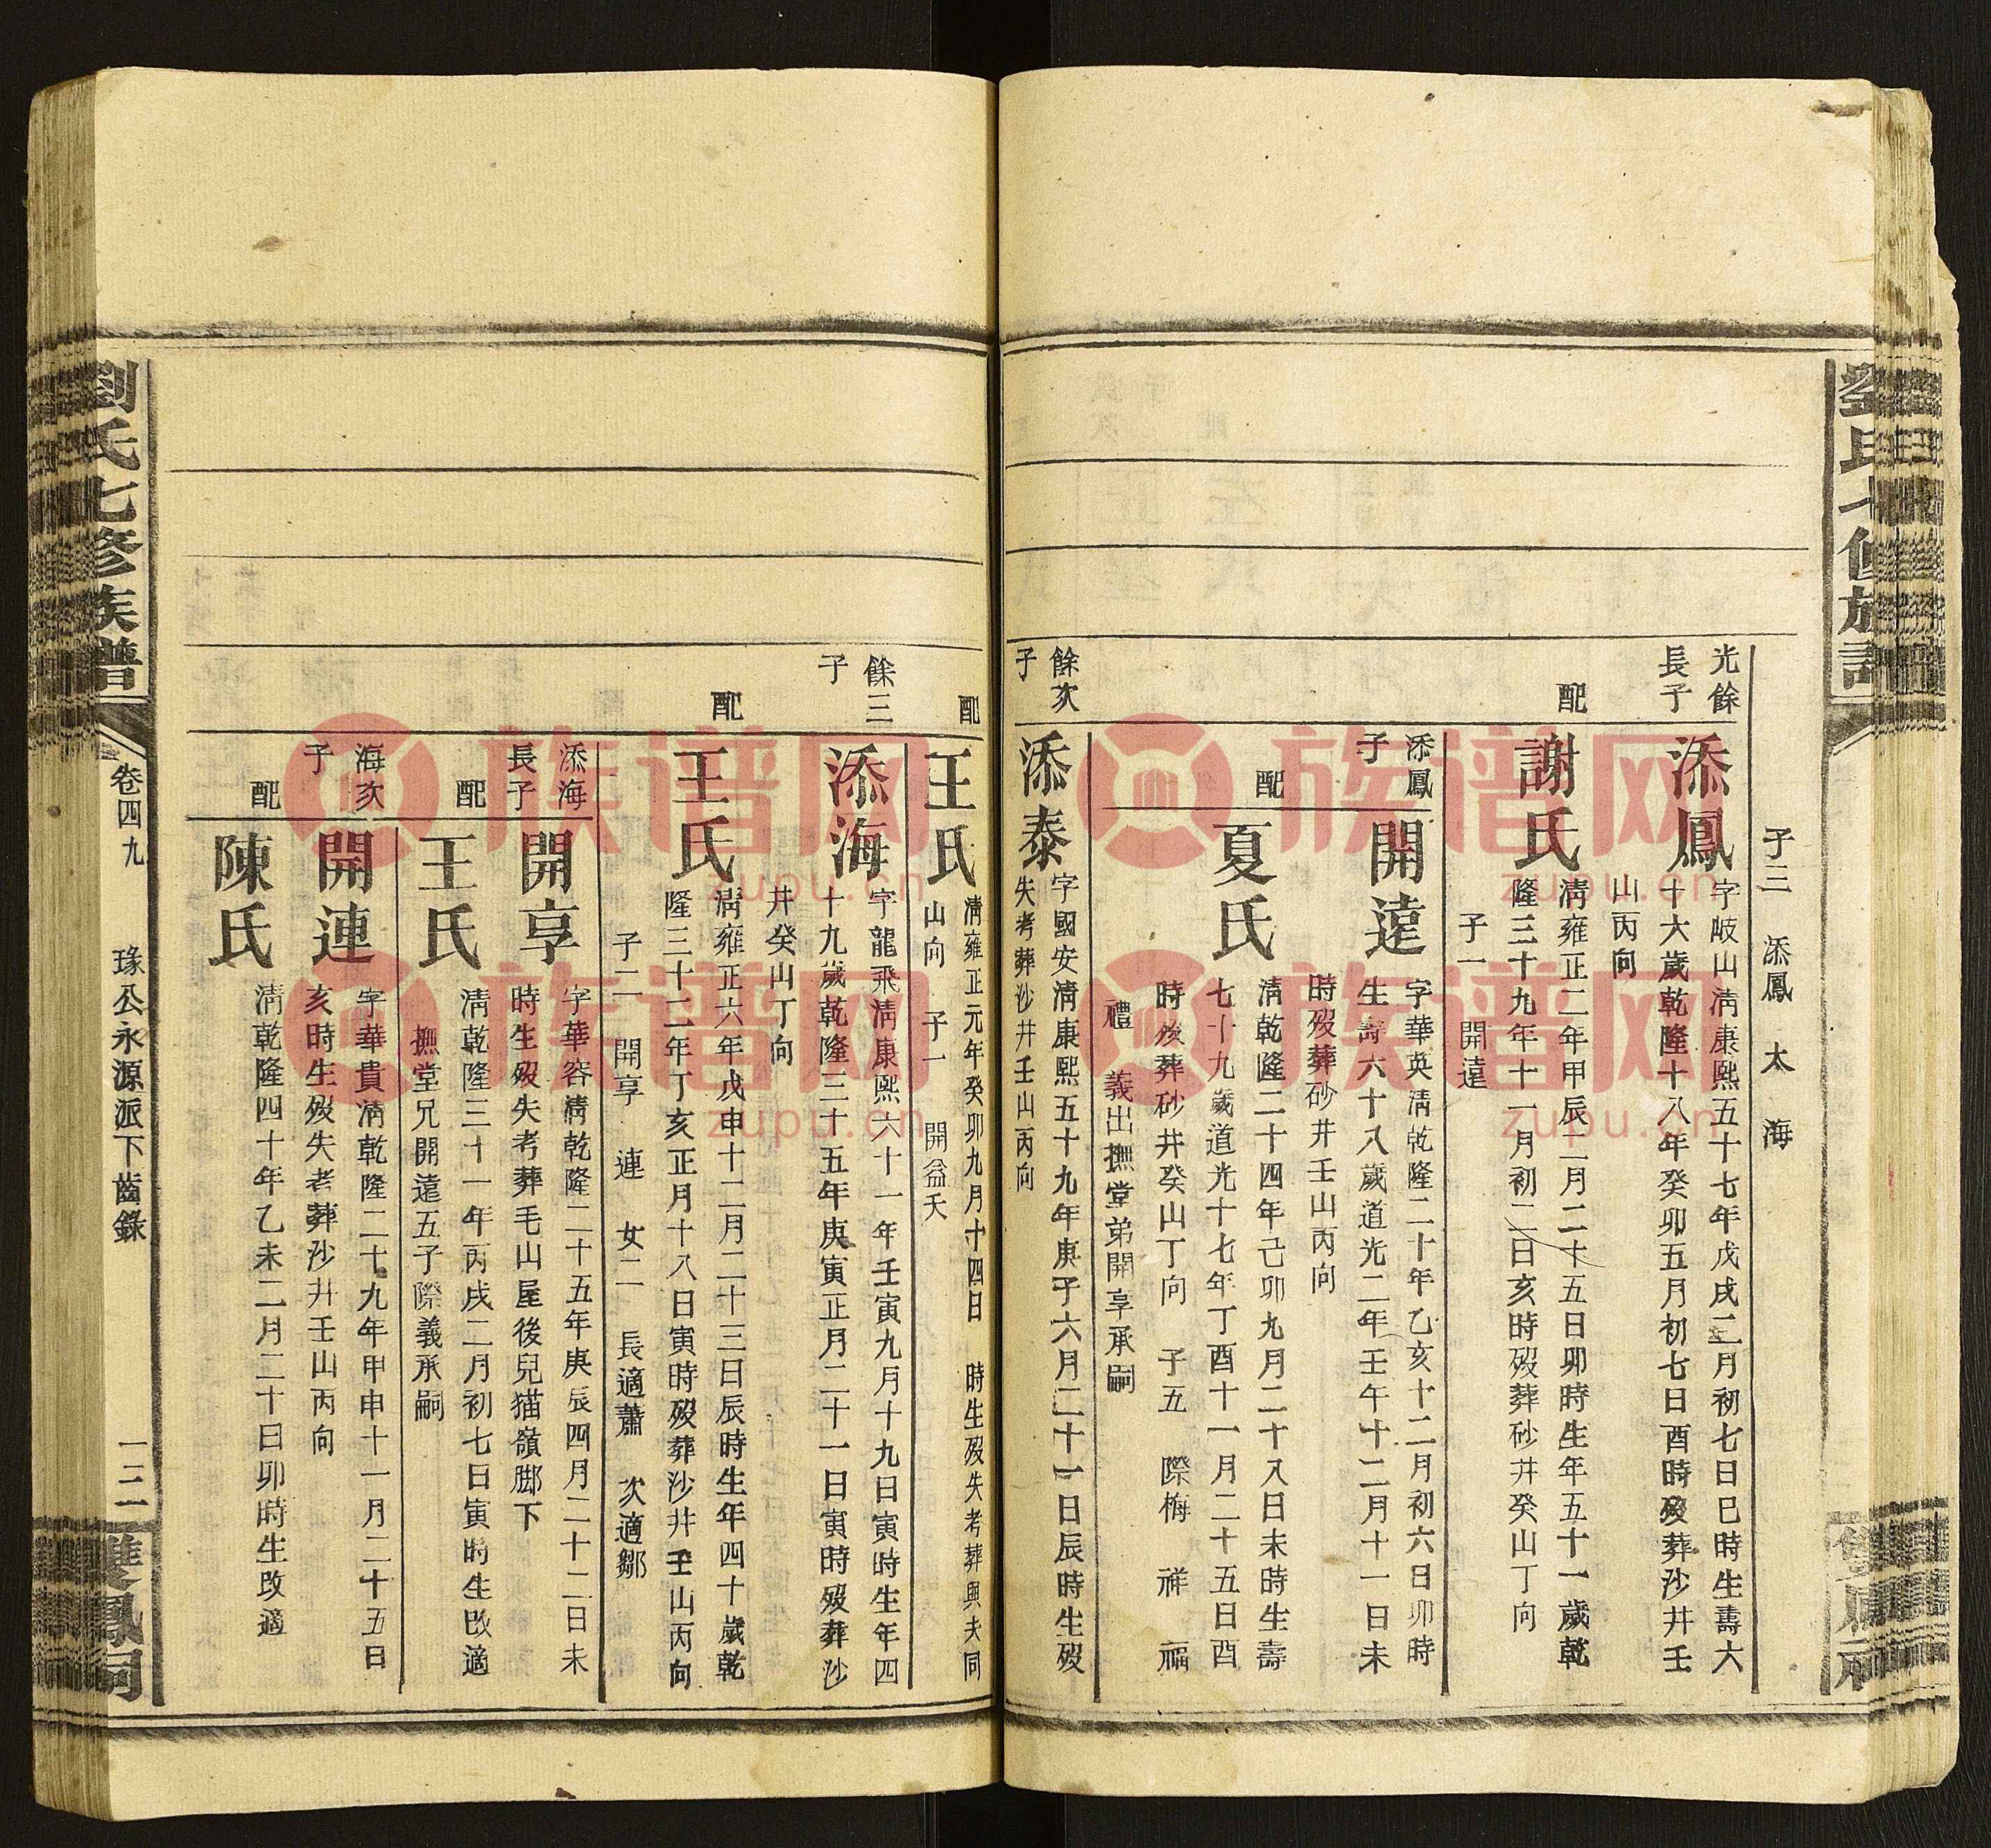 子三　添鳳　太　海
光餘
長子
添鳳
字岐山清康熙五十七年戊戌二月初七日巳時生壽六
十六歲乾隆十八年癸卯五月初七日酉時歿葬沙井壬
山丙向
配
謝氏
清雍正二年甲辰二月二十五日卯時生年五十一歲乾
隆三十九年十一月初二日亥時歿葬砂井癸山丁向
子一　開遠
添鳳
子
開遠
字華英清乾隆二十年乙亥十二月初六日卯時
生壽六十八歲道光二年壬午十二月十一日未
時歿葬砂井壬山丙向
配
夏氏
清乾隆二十四年己卯九月二十八日未時生壽
七十九歲道光十七年丁酉十一月二十五日酉
時歿葬砂井癸山丁向　子五　際梅　祥　福
禮　義出撫堂弟開享承嗣
餘次
子
添泰
字國安清康熙五十九年庚子六月二十一日辰時生歿
失考葬沙井壬山丙向
配
王氏
清雍正元年癸卯九月十四日　時生歿失考葬與夫同
山向　子一　開益夭
餘三
子
添海
字龍飛清康熙六十一年壬寅九月十九日寅時生年四
十九歲乾隆三十五年庚寅正月二十一日寅時歿葬沙
井癸山丁向
配
王氏
清雍正六年戊申十二月二十三日辰時生年四十歲乾
隆三十二年丁亥正月十八日寅時歿葬沙井壬山丙向
子二　開享　連　女二　長適蕭　次適鄒
添海
長子
開享
字華容清乾隆二十五年庚辰四月二十二日未
時生歿失考葬毛山屋後兒猫嶺脚下
配
王氏
清乾隆三十一年丙戌二月初七日寅時生改適
撫堂兄開遠五子際義承嗣
海次
子
開連
字華貴清乾隆二十九年甲申十一月二十五日
亥時生歿失考葬沙井壬山丙向
配
陳氏
清乾隆四十年乙未二月二十日卯時生改適
劉氏七修族譜
卷四九
瑑公永源派下齒錄
一三
雙鳳祠
族谱网
zupu.cn